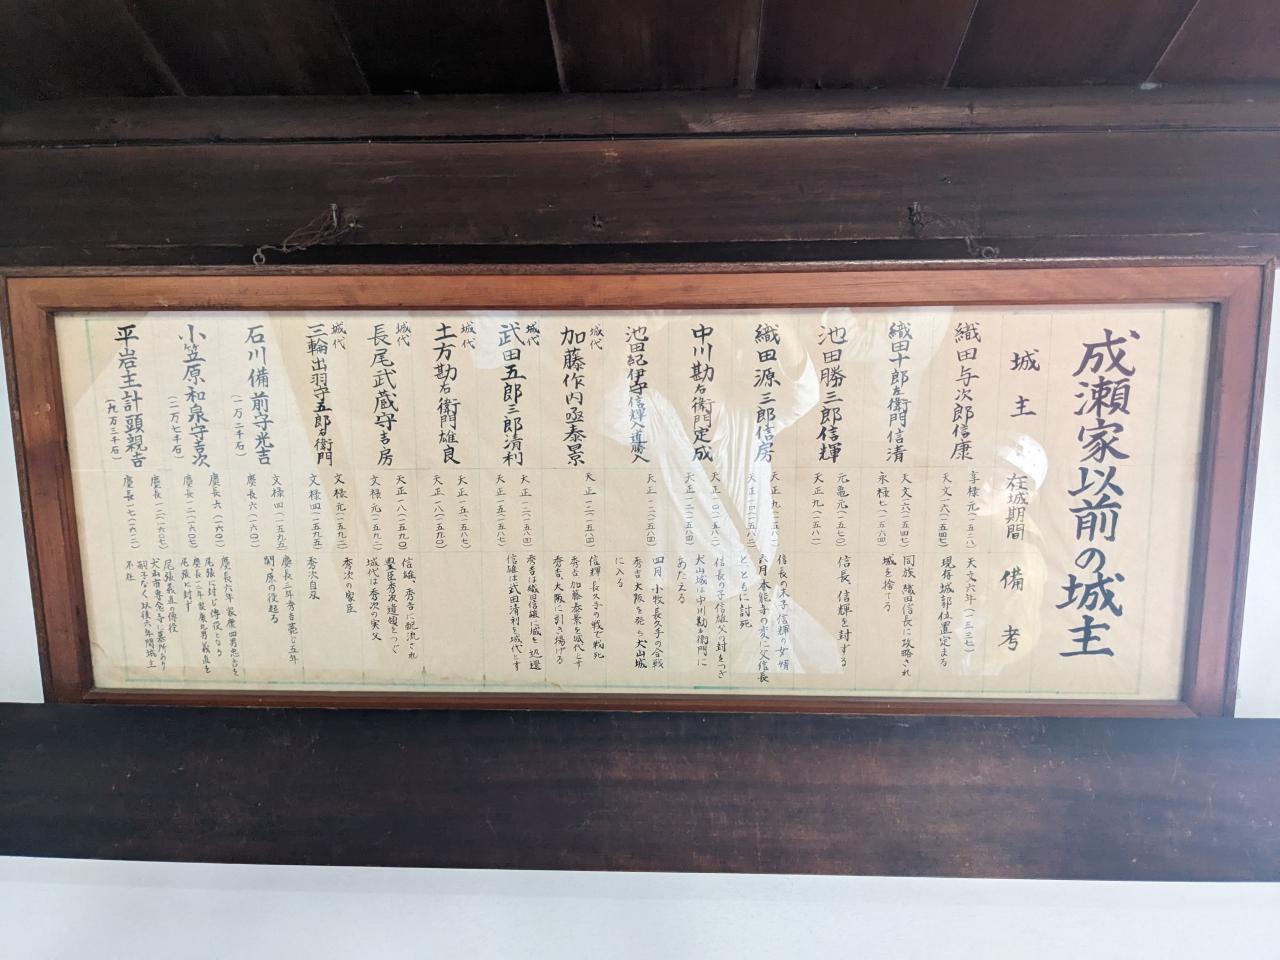 成瀬家以前の城主
城主
在城期間
備考
織田与次郎信康
享禄元(一五二八)
天文一六(一五四七)
天文六年(一五三七)
現在城郭位置定まる
織田十郎左衛門信清
天文一六(一五四七)
永禄七(一五六四)
同族織田信長に攻略され
城を捨てる
池田勝三郎信輝
元亀元(一五七〇)
天正九(一五八一)
信長、信輝を封ずる
織田源三郎信房
天正九(一五八一)
天正一〇(一五八二)
信長の末子、信輝の女婿
六月本能寺の変に父信長
とともに討死
中川勘右衛門定成
天正一〇(一五八二)
天正一二(一五八四)
信長の子信雄父の封をつぎ
犬山城は中川勘右衛門に
あたえる
池田紀伊守信輝入道勝入
天正一二(一五八四)
四月小牧長久手の合戦
秀吉大阪を発ち犬山城
に入る
城代
加藤作内丞泰景
天正一二(一五八四)
信輝長久手の戦で戦死
秀吉、加藤泰景を城代とす
秀吉、大阪に引き揚げる
城代
武田五郎三郎清利
天正一二(一五八四)
天正一五(一五八七)
秀吉は織田信雄に城を返還
信雄は武田清利を城代とす
城代
土方勘右衛門雄良
天正一五(一五八七)
天正一八(一五九〇)
城代
長尾武蔵守吉房
天正一八(一五九〇)
文禄元(一五九二)
信雄、秀吉に配流され
豊臣秀次遺領をつぐ
城代は秀次の実父
城代
三輪出羽守五郎右衛門
文禄元(一五九二)
文禄四(一五九五)
秀次の家臣
秀次自及
石川備前守光吉
(一万二千石)
文禄四(一五九五)
慶長五(一六〇〇)
慶長三年秀吉薨じ五年
関ヶ原の役起る
小笠原和泉守吉次
(二万七千石)
慶長六(一六〇一)
慶長一二(一六〇七)
慶長六年家康四男忠吉を
尾張に封じ傅役となる
慶長一二年家康九男義直を
尾張に封ず
平岩主計頭親吉
(九万三千石)
慶長一二(一六〇七)
慶長一七(一六一二)
尾張義直の傅役
犬山市専念寺に墓所あり
嗣子なく以後六年間城主
不在